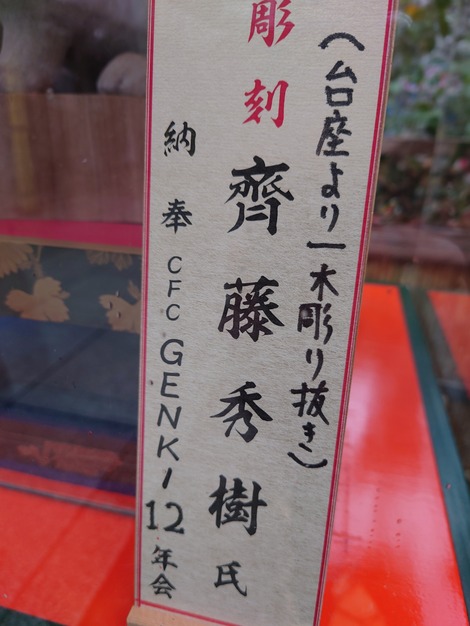 （台座より一木彫り抜き）
彫刻 齊藤秀樹氏
納奉 CFC GENKI 12年会